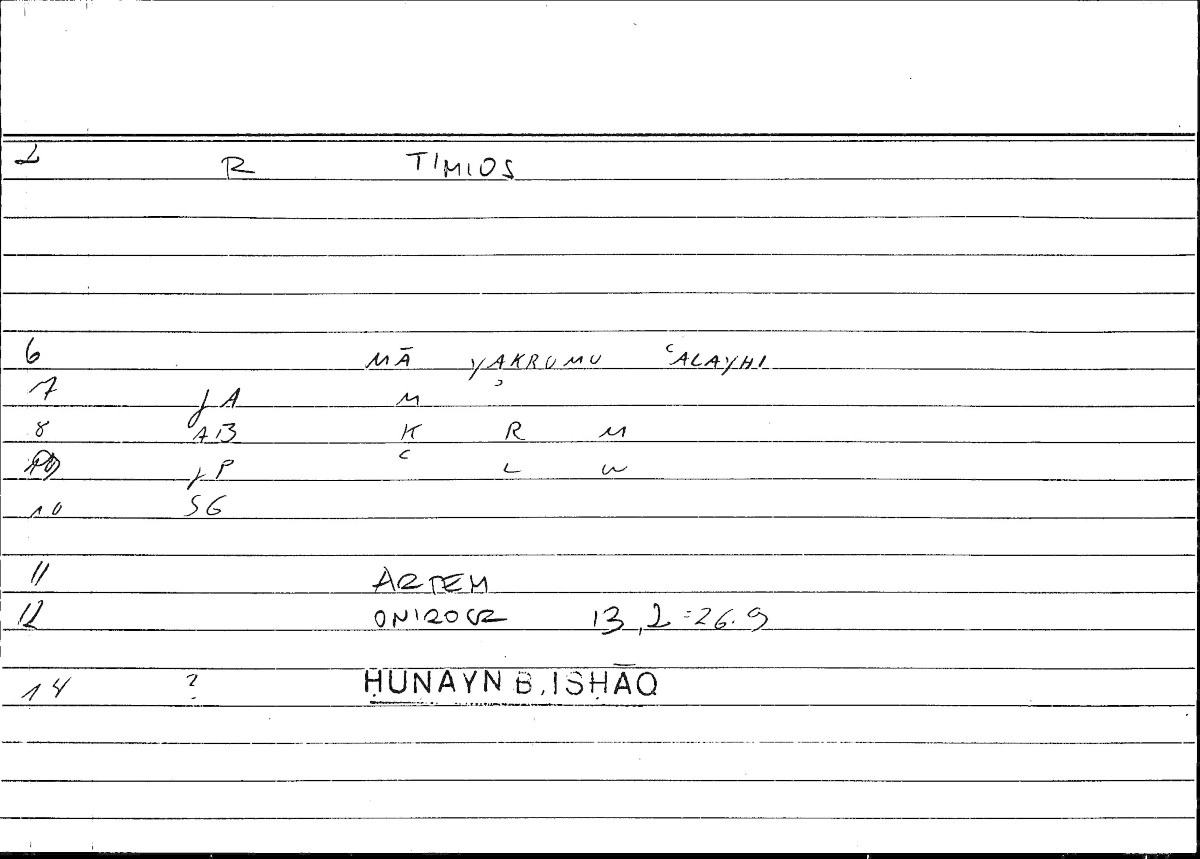 2 R TIMIOS
6 MĀ YAKRUMU ʿALAYHI
7 JA M ʾ
8 AB K R M
JP ʿ L W
10 SG
11 ARTEM
12 ONIROCR 13,2=26.9
14 ? ḤUNAYN B. ISḤĀQ